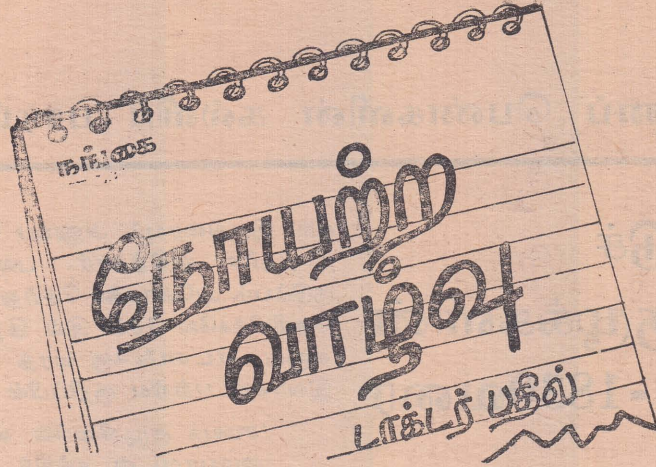 நங்கை
நோயற்ற
வாழ்வு
டாக்டர் பதில்